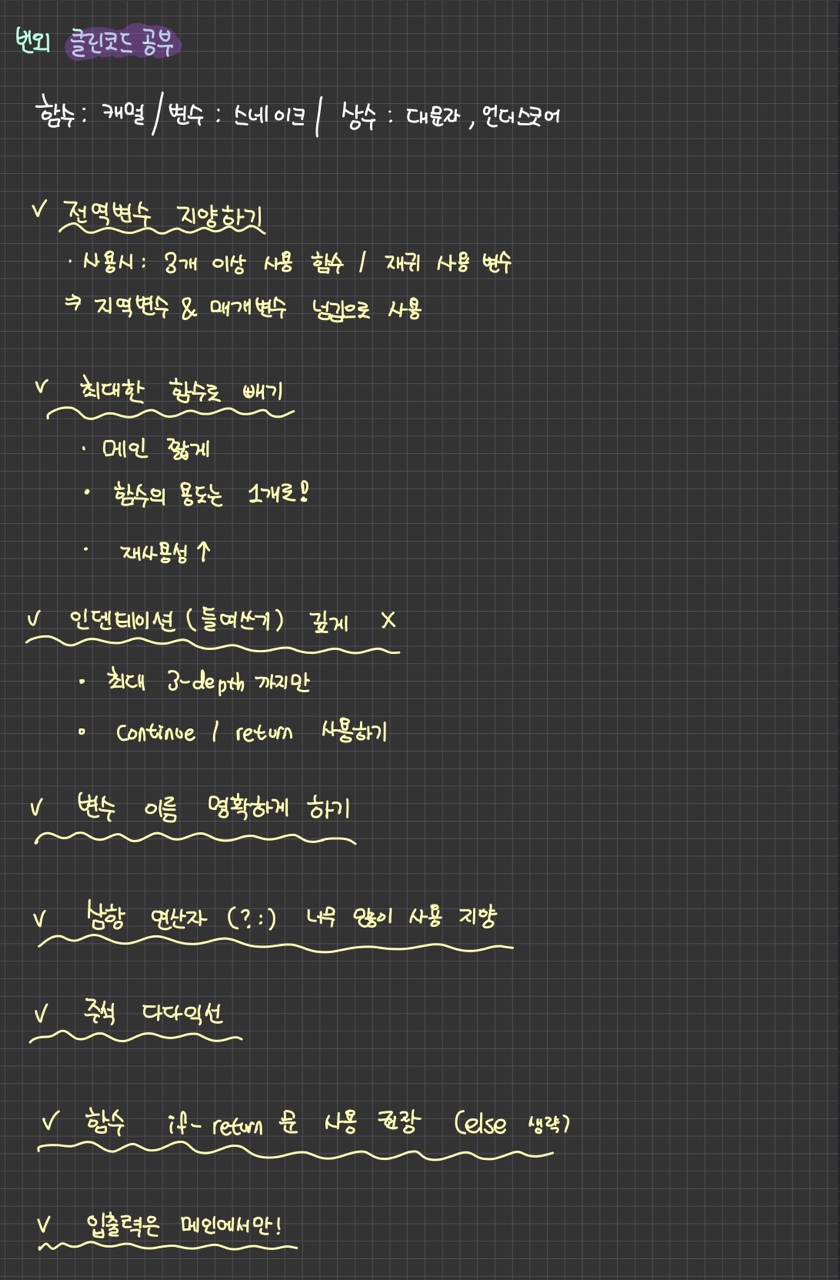 번외 클린코드 공부
함수 : 캐멀 / 변수 : 스네이크 / 상수 : 대문자, 언더스코어
✓ 전역변수 지양하기
· 사용시 : 3개 이상 사용 함수 / 재귀 사용 변수
⇒ 지역변수 & 매개변수 넘김으로 사용
✓ 최대한 함수로 빼기
· 메인 짧게
· 함수의 용도는 1개로!
· 재사용성 ↑
✓ 인덴테이션 (들여쓰기) 깊게 X
· 최대 3-depth 까지만
· continue / return 사용하기
✓ 변수 이름 명확하게 하기
✓ 삼항 연산자 (?:) 너무 많이 사용 지양
✓ 주석 다다익선
✓ 함수 if-return 문 사용 권장 (else 생략)
✓ 입출력은 메인에서만!